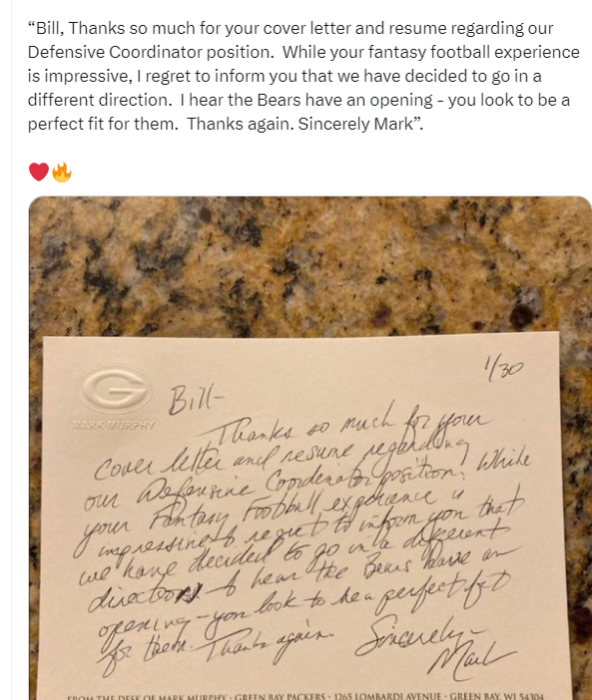 “Bill, Thanks so much for your cover letter and resume regarding our
Defensive Coordinator position.  While your fantasy football experience
is impressive, I regret to inform you that we have decided to go in a
different direction.  I hear the Bears have an opening - you look to be a
perfect fit for them.  Thanks again. Sincerely Mark”.
❤️🔥
G
MARK MURPHY
1/30
Bill-
Thanks so much for your
cover letter and resume regarding
our Defensive Coordinator position. While
your Fantasy Football experience is
impressive, I regret to inform you that
we have decided to go in a different
direction. I hear the Bears have an
opening - you look to be a perfect fit
for them. Thanks again. Sincerely,
Mark
FROM THE DESK OF MARK MURPHY · GREEN BAY PACKERS · 1265 LOMBARDI AVENUE · GREEN BAY, WI 54304